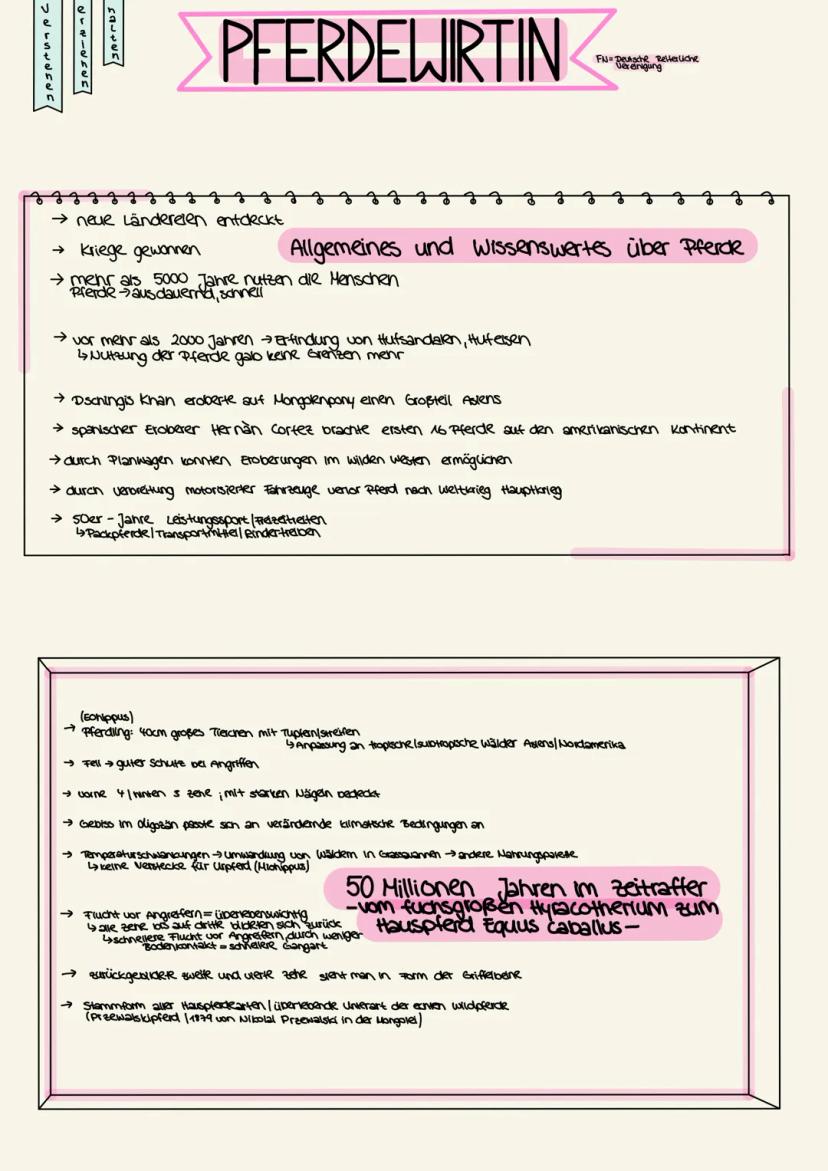 Verstehen
erziehen
halten
PFERDEWIRTIN
FN= Deutsche Reiterliche
Vereinigung
→ neue Ländereien entdeckt
→ Kriege gewonnen
Allgemeines und Wissenswertes über Pferde
→ mehr als 5000 Jahre nutzen die Menschen
Pferde → ausdauernd, schnell
→ vor mehr als 2000 Jahren → Erfindung von Hufsandalen, Hufeisen
↳ Nutzung der Pferde gab keine Grenzen mehr
→ Dschingis Khan eroberte auf Mongolenpony einen Großteil Asiens
→ spanischer Eroberer Hernàn Cortez brachte ersten 16 Pferde auf den amerikanischen Kontinent
→ durch Planwagen konnten Eroberungen im wilden Westen ermöglichen
→ durch verbreitung motorisierter Fahrzeuge verlor Pferd nach Weltkrieg Hauptkrieg
→ 50er - Jahre Leistungssport/Freizeitreiten
↳ Packpferde/Transportmittel/Rindertreiben
(Eohippus)
→ Pferdling: 40cm großes Tierchen mit Tupfen/streifen
↳ Anpassung an tropische/subtropische Wälder Asiens/Nordamerika
→ Fell → guter Schutz bei Angriffen
→ vorne 4/hinten 3 zehe ; mit starken Nägeln bedeckt
→ Gebiss im Oligozän passte sich an verändernde klimatische Bedingungen an
→ Temperaturschwankungen → Umwandlung von Wäldern in Grassavannen → andere Nahrungspalette
↳ keine Verstecke für Urpferd (Miohippus)
50 Millionen Jahren im Zeitraffer
-vom fuchsgroßen Hyracotherium zum
Hauspferd Equus Caballus-
→ Flucht vor Angreifern = überlebenswichtig
↳ alle zehe bis auf dritte bildeten sich zurück
↳ schnellere Flucht vor Angreifern, durch weniger
Bodenkontakt = schnellere Gangart
→ zurückgebildete zweite und vierte zehe sieht man in Form der Griffelbeine
→ Stammform aller Hauspferdearten/überlebende Unterart der echten Wildpferde
(Przewalskipferd/1879 von Nikolai Przewalski in der Mongolei)